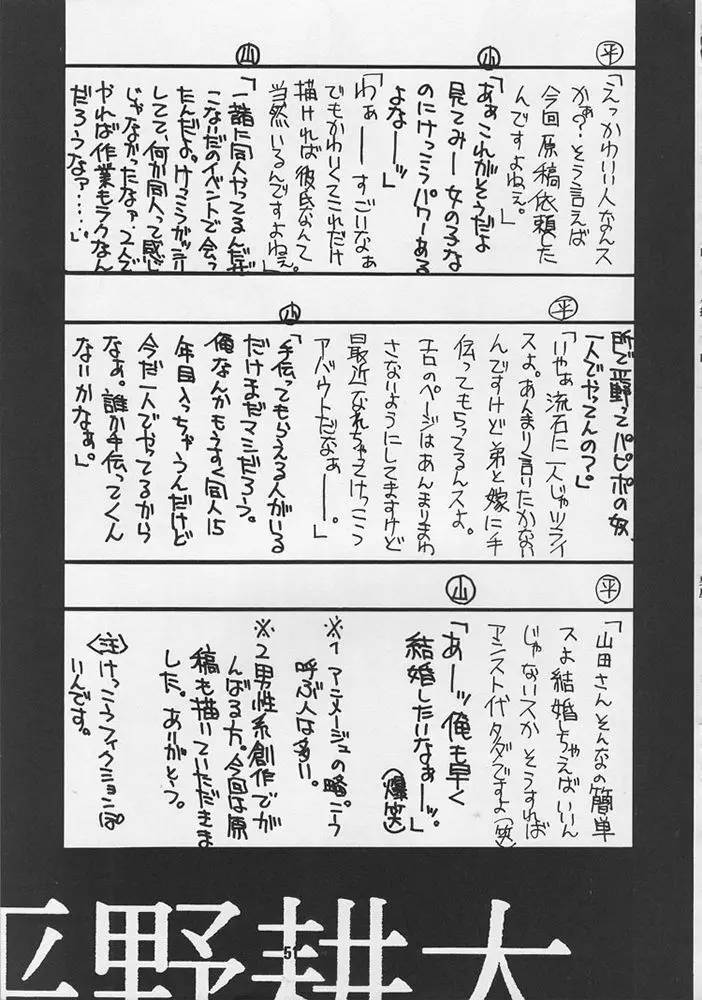 平
「えっかわいい人なんス
かぁ?そう言えば
今回原稿依頼した
んですよねぇ。」
山
「あぁこれがそうだよ
見てみー女の子な
のにけっこうパワーある
よなーッ」
「わぁーーすごいなぁ
でもかわいくてこれだけ
描ければ彼氏なんて
当然いるんですよねぇ。」
山
「一諸に同人やってるんだぜ
こないだのイベントで会っ
たんだよ。けっこうガッシリ
してて、何か同人って感じ
じゃなかったなァ。2人で
やれば作業もラクなん
だろうなァ……」
所で平野ってパピポの奴、
一人でやってんの?。」
平
「いやぁ流石に一人じゃツライ
スよ。あんまり言いたかな
んですけど弟と嫁に手
伝ってもらってるんスよ。
エロのページはあんまりまわ
さないようにしてますけど
最近なれちゃってけっこう
アバウトだなぁー。」
山
「手伝ってもらえる人がいる
だけまだマシだろう。
俺なんかもうすぐ同人15
年目入っちゃうんだけど
今だ一人でやってるから
なぁ。誰か手伝ってくん
ないかなぁ。」
平
「山田さんそんなの簡単
スよ結婚しちゃえばいいん
じゃないスか そうすれば
アシスト代タダですよ(笑)
山
「あーッ俺も早く
結婚したいなぁーッ。」
(爆笑)
※1 アニメージュの略。こう
呼ぶ人は多い。
※2 男性系創作でが
んばる方。今回は原
稿も描いていただきま
した。ありがとう。
〈注〉けっこうフィクションぽ
いんです。
平野耕太
51